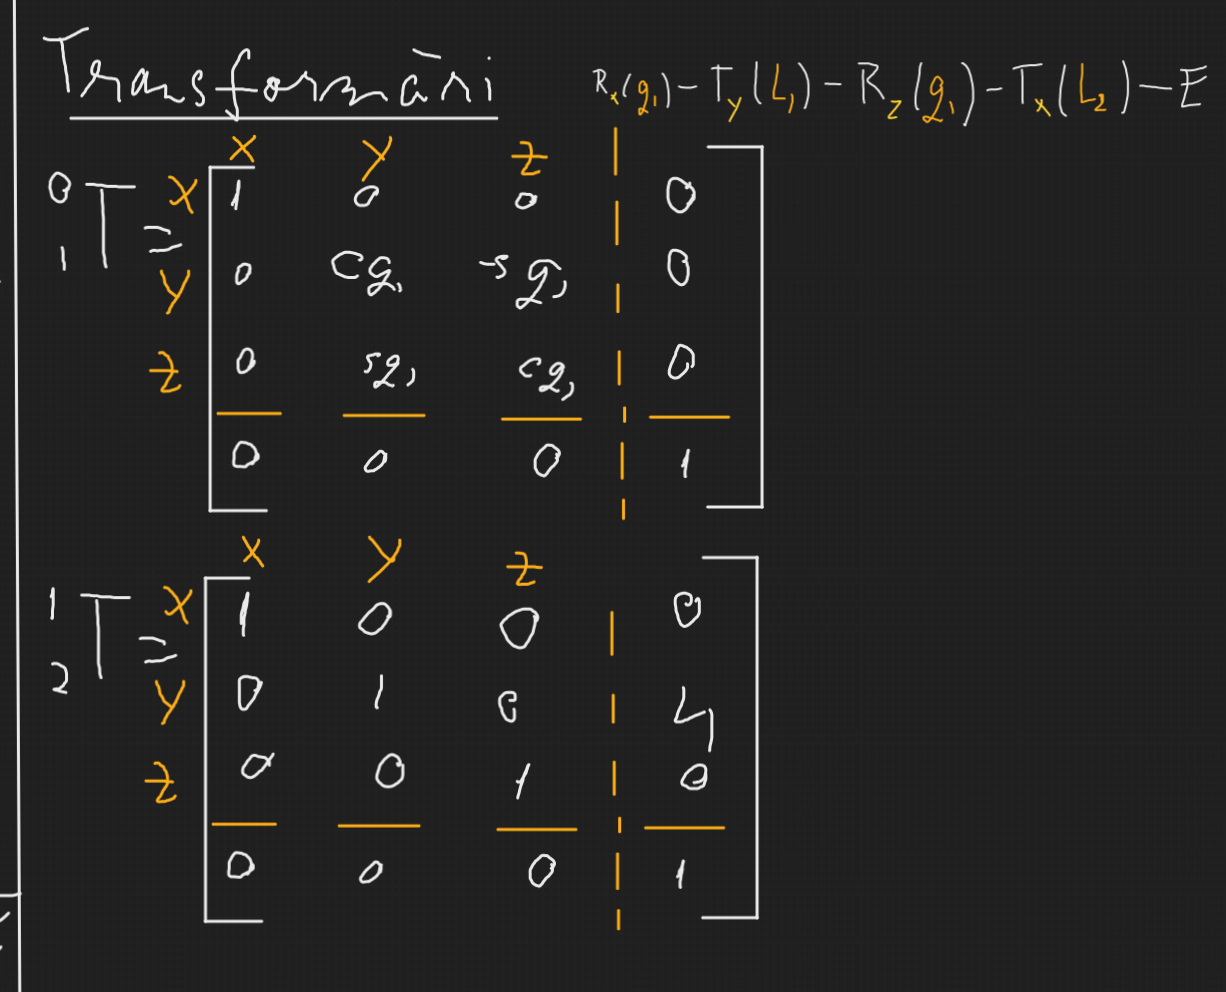 Transformări
Rx(q1) – Ty(L1) – Rz(q1) – Tx(L2) – E
x y z
0 1 T = x 1 0 0 0
y 0 cq1 -sq1 0
z 0 sq1 cq1 0
0 0 0 1
x y z
1 2 T = x 1 0 0 0
y 0 1 0 L1
z 0 0 1 0
0 0 0 1